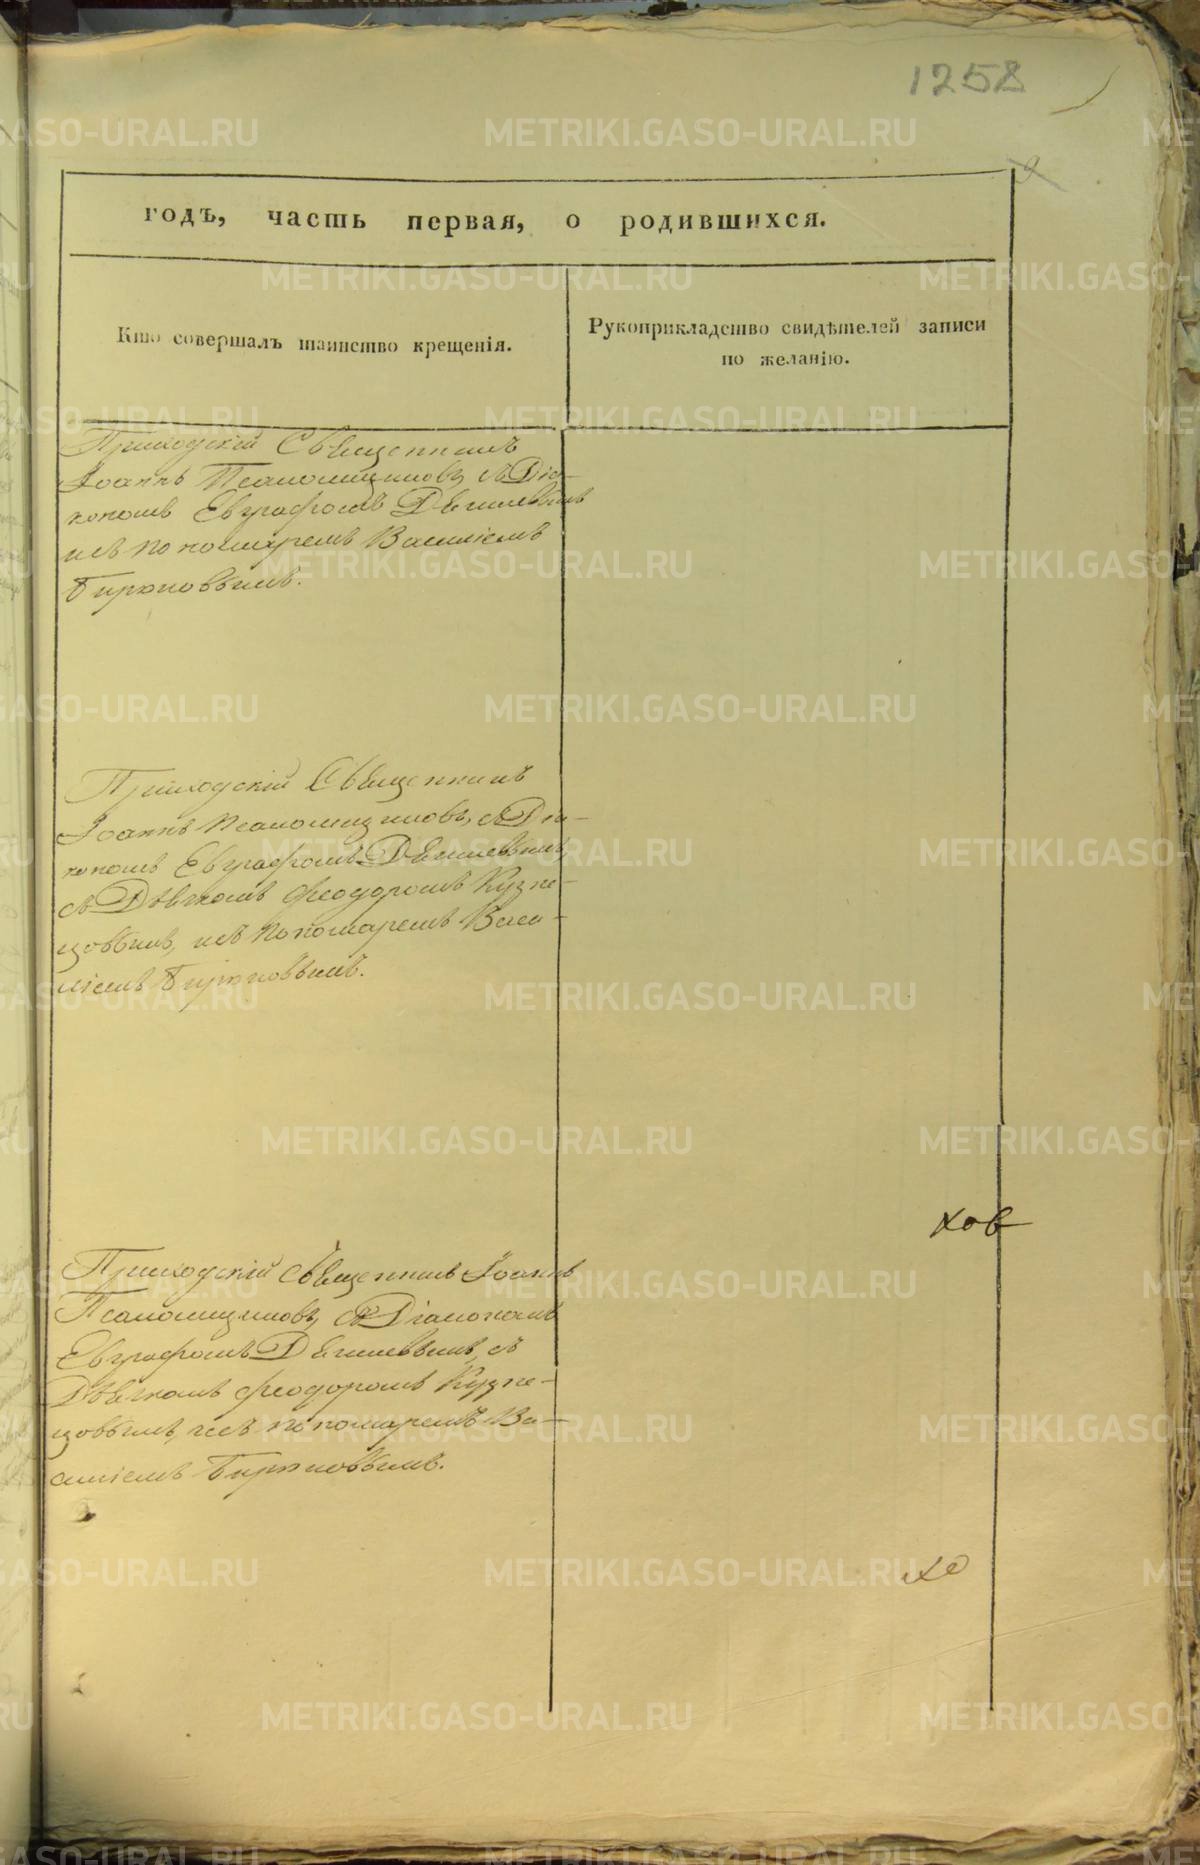 1258
годъ, часть первая, о родившихся.
Кто совершалъ таинство крещенія.
Рукоприкладство свидѣтелей записи
по желанію.
Приходскій Священникъ
Іоаннъ Псаломщиковъ, съ Діа-
кономъ Евграфомъ
и съ пономаремъ Василіемъ
Бирюковымъ.
Приходскій Священникъ
Іоаннъ Псаломщиковъ, съ Діа-
кономъ Евграфомъ
съ Дьячкомъ Феодоромъ Кузне-
цовымъ, и съ пономаремъ Васи-
ліемъ Бирюковымъ.
Приходскій Священникъ Іоаннъ
Псаломщиковъ, съ Діакономъ
Евграфомъ съ
Дьячкомъ Феодоромъ Кузне-
цовымъ, и съ пономаремъ Ва-
силіемъ Бирюковымъ.
ков
METRIKI.GASO-URAL.RU